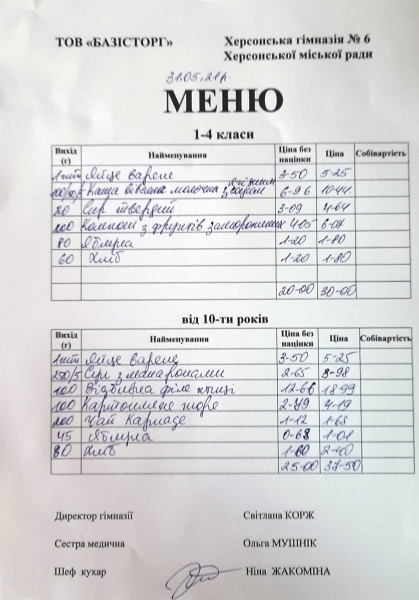 ТОВ «БАЗІСТОРГ» Херсонська гімназія № 6
Херсонської міської ради
31.05.21р.
МЕНЮ
1-4 класи
Вихід (г) Найменування Ціна без націнки Ціна Собівартість
1шт Яйце варене 3-50 5-25
Каша вівсяна молочна з 6-96 10-44
20 Сир твердий 3-09 4-64
200 Компот з фруктів заморожених 4-05 6-07
80 Яблука 1-20 1-80
60 Хліб 1-20 1-80
20-00 30-00
від 10-ти років
Вихід (г) Найменування Ціна без націнки Ціна Собівартість
1шт Яйце варене 3-50 5-25
250/5 Суп з макаронами 2-65 3-98
100 Відбивна філе птиці 12-66 18-99
100 Картопляне пюре 2-79 4-19
200 Чай Каркаде 1-12 1-68
45 Яблука 0-68 1-01
80 Хліб 1-60 2-40
25-00 37-50
Директор гімназії Світлана КОРЖ
Сестра медична Ольга МУШНІК
Шеф кухар Ніна ЖАКОМІНА